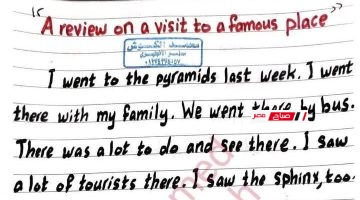 " A review on a visit to a famous place "
I went to the pyramids last week. I went
there with my family. We went there by bus.
صباح مصر
There was a lot to do and see there. I saw
a lot of tourists there. I saw the sphinx, too.